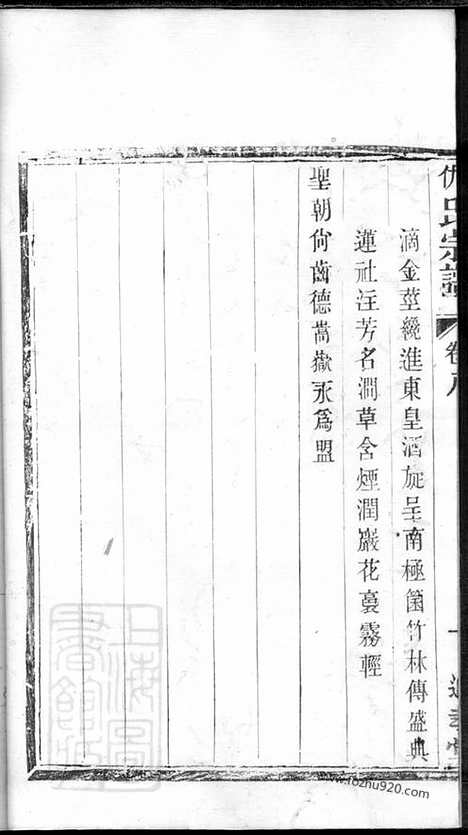 氏宗譜
卷八
滴金莖纔進東皇酒旋呈南極箇竹林傳盛典
蓮社注芳名澗草含煙潤巖花裛霧輕
聖朝尙齒德嵩嶽永爲盟
上海圖書館藏
www.fozhu920.com